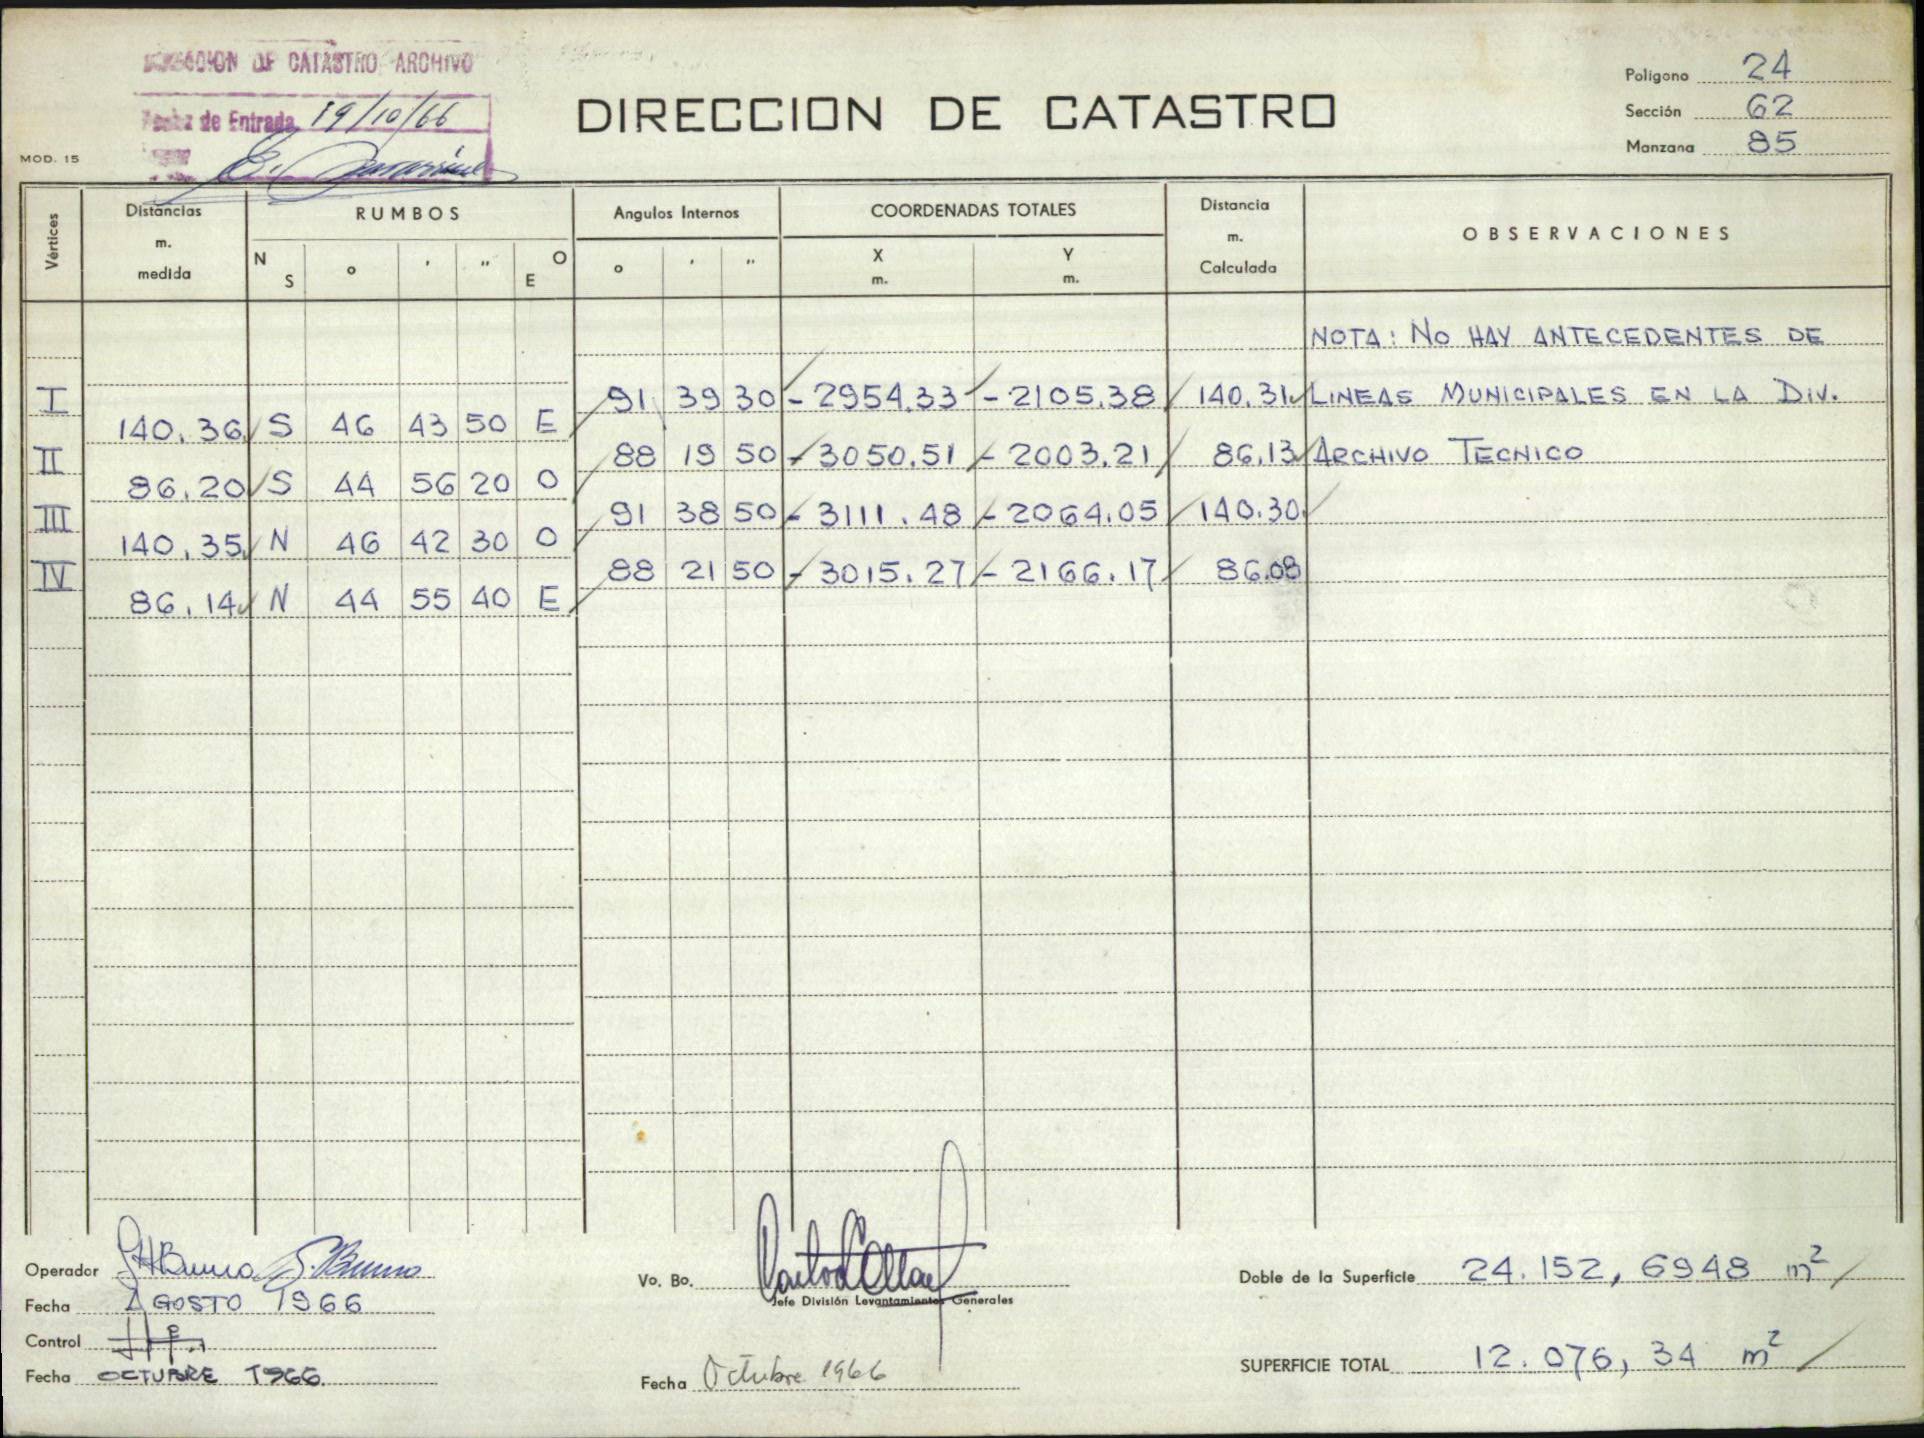 DIRECCION DE CATASTRO ARCHIVO
Fecha de Entrada 19/10/66
MOD. 15
DIRECCION DE CATASTRO
Polígono 24
Sección 62
Manzana 85
Vértices
Distancias m. medida
RUMBOS
N S ° ' '' O E
Angulos Internos
° ' ''
COORDENADAS TOTALES
X m. Y m.
Distancia m. Calculada
OBSERVACIONES
NOTA: No HAY ANTECEDENTES DE
I 91 39 30 - 2954.33 - 2105.38 140.31 LINEAS MUNICIPALES EN LA DIV.
140.36 S 46 43 50 E
II 88 19 50 - 3050.51 - 2003.21 86.13 ARCHIVO TECNICO
86.20 S 44 56 20 O
III 91 38 50 - 3111.48 - 2064.05 140.30
140.35 N 46 42 30 O
IV 88 21 50 - 3015.27 - 2166.17 86.08
86.14 N 44 55 40 E
Operador
Fecha AGOSTO 1966
Control
Fecha OCTUBRE 1966.
Vo. Bo.
Jefe División Levantamientos Generales
Fecha Octubre 1966
Doble de la Superficie 24.152,6948 m²
SUPERFICIE TOTAL 12.076,34 m²